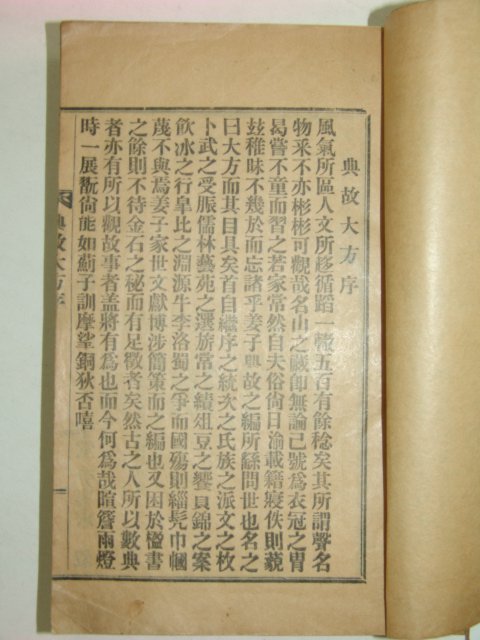 典故大方序
風氣所區人文所移循蹈一轍五百有餘稔矣其所謂聲名
物采不亦彬彬可觀哉名山之藏卽無論已號爲衣冠之胄
曷嘗不童而習之若家常然自夫俗尙日渝載籍寖佚則藐
玆稚昧不幾於而忘諸乎姜子典故之編所繇問世也名之
曰大方而其目具矣首自繼序之統次之氏族之派文之枚
卜武之受脤儒林藝苑之選旂常之績俎豆之饗貝錦之案
飮冰之行皐比之淵源牛李洛蜀之爭而國殤則緇髡巾幗
蔑不與焉姜子家世文獻博涉簡策而之編也又困於楹書
之餘則不待金石之秘而有足徵者矣然古之人所以數典
者亦有所以觀故事者盖將有爲也而今何爲哉暄簷雨燈
時一展翫尙能如薊子訓摩挲銅狄否嘻
典故大方序